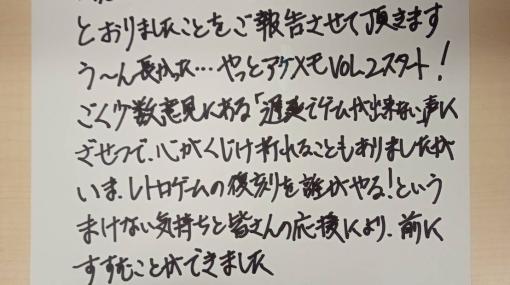 とおりましたことをご報告させて頂きます
う〜ん長かった…やっとアケメモVOL.2スタート!
ごく少数意見にある「遅延でゲームが出来ない」声に
ざせつで、心がくじけ折れることもありましたが
いま、レトロゲームの復刻を誰がやる!という
まけない気持ちと皆さんの応援により、前に
すすむことができました